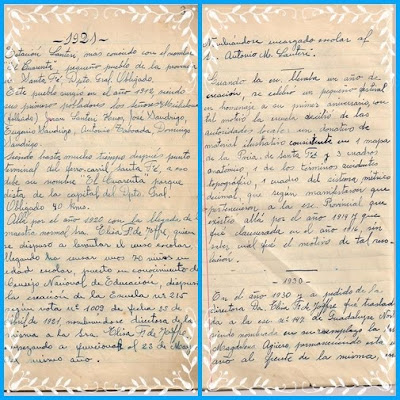 - 1921 -
Estación Santeri, mas conocido con el nombre
"El Cuarenta", pequeño pueblo de la provincia
Santa Fé, Dpto. Gral. Obligado.
Este pueblo surgió en el año 1912, siendo
sus primeros pobladores los señores
Juan Santeri, José Sandrigo,
Eugenio Sandrigo, Antonio Domingo
Sandrigo.
Siendo hasta mucho tiempo después punto
terminal del ferrocarril Santa Fé, a eso
debe su nombre El Cuarenta porque
dista de la capital del Dpto. Gral.
Obligado 40 Kms.
Allá por el año 1920 con la llegada de
maestra normal Sra. Elia de Joffre, quien
se dispuso a levantar el censo escolar.
Llegando a censar unos 70 niños en
edad escolar, puesto en conocimiento del
Consejo Nacional de Educación, después
la creación de la Escuela nº 215
según nota nº 1009 de fecha 25 de
abril de 1921 nombrándose directora de la
misma a la Sra. Elia de Joffre,
empezando a funcionar el 23 de
mismo año.
Nombrándose encargado escolar al
S. Antonio M. Santeri.
Cuando la esc. llevaba un año de
creación, se celebró un pequeño festival
en homenaje a su primer aniversario, con
tal motivo la escuela recibió de las
autoridades locales un donativo de
material ilustrativo consistente en 1 mapa
de la Pcia. de Santa Fé y 3 cuadros
anatomía, 1 de los términos
topográficos, 1 cuadro del sistema métrico
decimal, que según manifestaron que
pertenecieron a la esc. Provincial que
existía allá por el año 1914 y que
fué clausurada en el año 1916, sin
saber cuál fué el motivo de tal reso-
lución.
- 1930 -
En el año 1930 y a pedido de la
directora Sra. Elia F. de Joffre fué traslada-
da a la esc. nº 142 de Guadalupe Nor
siendo nombrada en su reemplazo la
Magdalena Agüero, permaneciendo esta
año al frente de la misma,